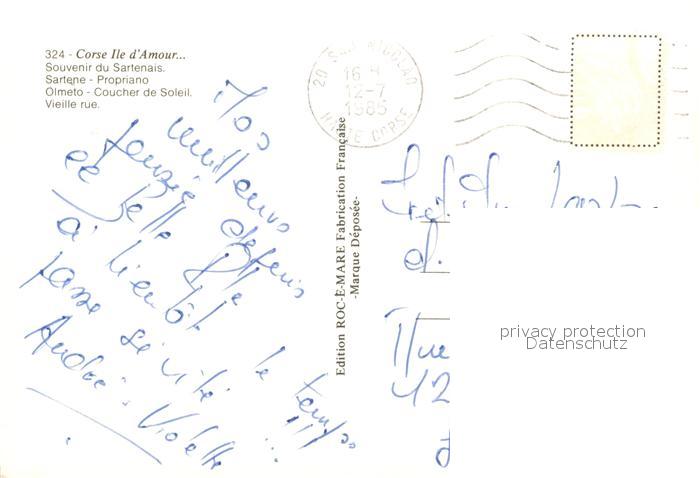 324 - Corse Ile d'Amour...
Souvenir du Sartenais.
Sartène - Propriano
Olmeto - Coucher de Soleil.
Vieille rue.
20 SAN NICOLAO
16 H
12-7
1985
HAUTE CORSE
Edition ROC-E-MARE Fabrication Française
-Marque Déposée-
Nos
meilleurs
depuis
belle
à bientôt le temps
passe si vite !!!
André. Violette
Rue
42
privacy protection
Datenschutz